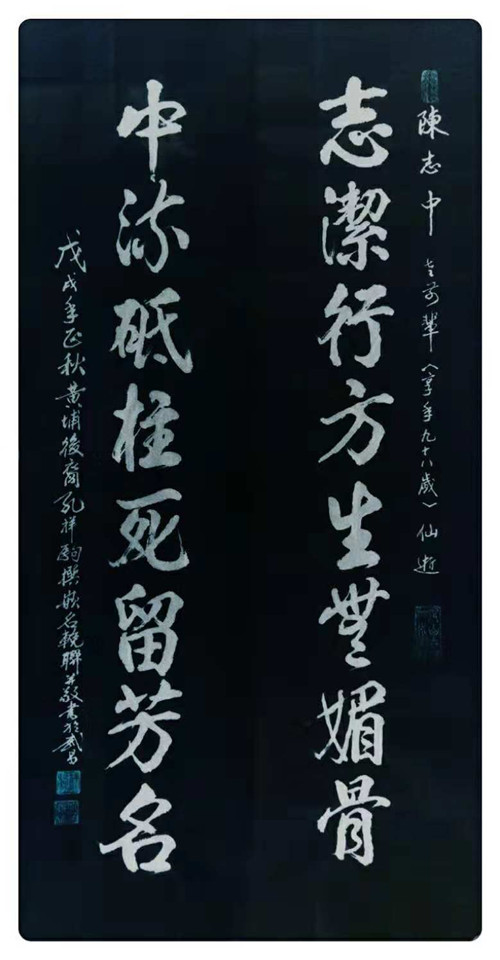 陳志中老前輩（享年九十八歲）仙逝
志潔行方生無媚骨
中流砥柱死留芳名
戊戌年正秋黃埔後裔孔祥駒撰嵌名輓聯並敬書於武昌